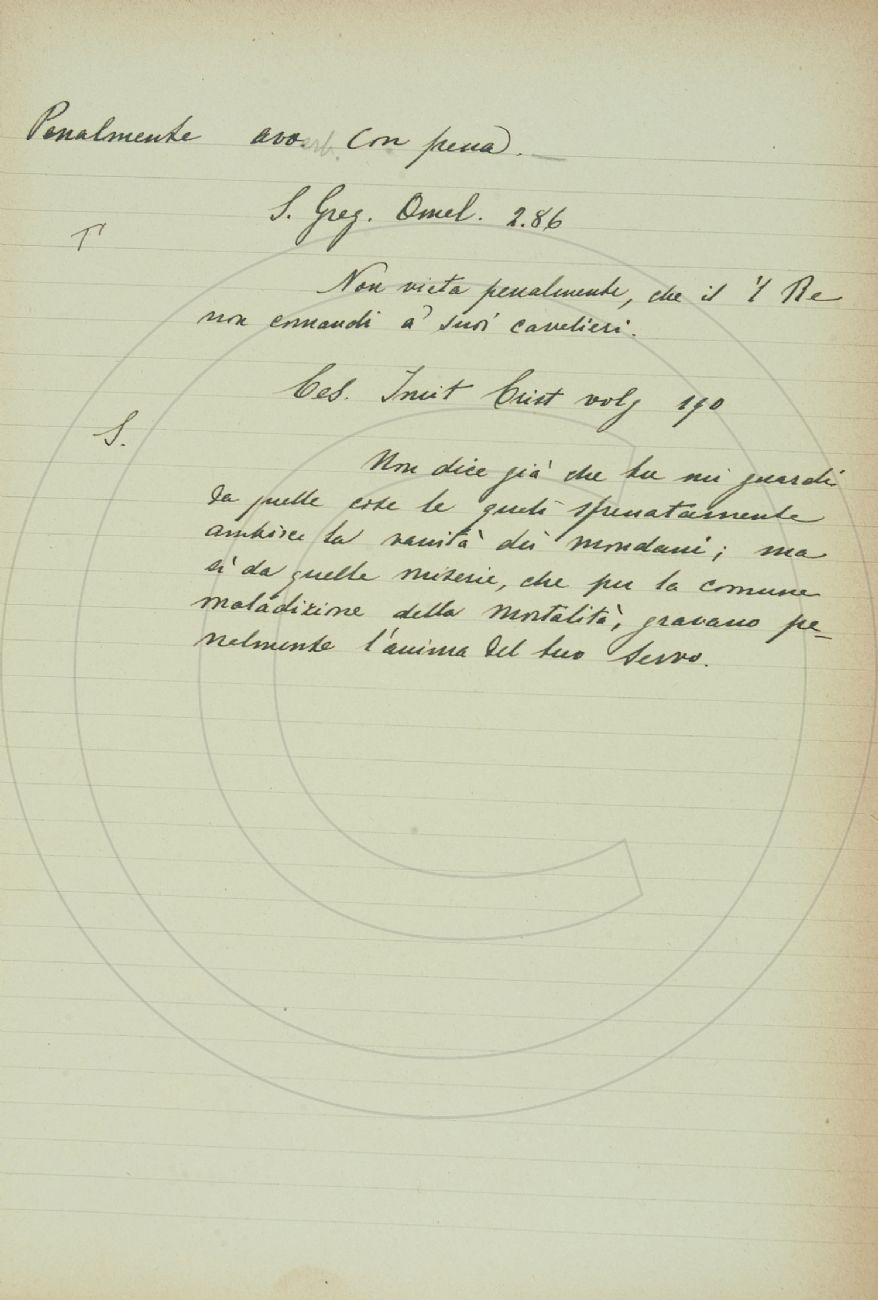 Penalmente avv. Con pena.
S. Greg. Omel. 2.86
T
Non vieta penalmente, che il 'l Re
non comandi a' suoi cavelieri.
Ces. Imit Crist volg 190
S.
Non dice già che tu mi guardi
da quelle cose le queli sfrenatamente
ambisce la vanità dei mondani; ma
sì da quelle miserie, che per la comune
maladizione della mortalità, gravano pe-
nalmente l'anima del tuo servo.